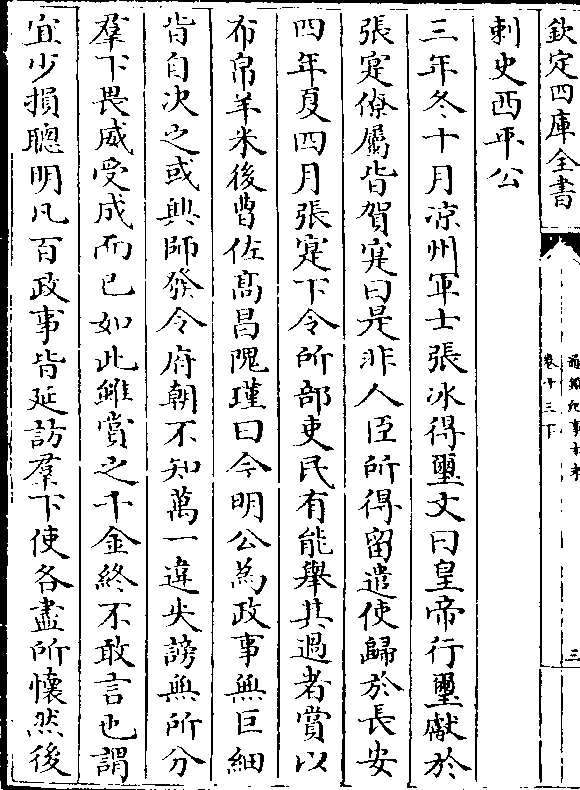 欽定四庫全書
通鑑紀事本末
卷十三下
三
刺史西平公
三年冬十月凉州軍士張冰得璽文曰皇帝行璽獻於
張寔僚屬皆賀寔曰是非人臣所得留遣使歸於長安
四年夏四月張寔下令所部吏民有能舉其過者賞以
布帛羊米後曹佐髙昌隗瑾曰今明公為政事無巨細
皆自決之或興師發令府朝不知萬一違失謗無所分
羣下畏威受成而已如此雖賞之千金終不敢言也謂
宜少損聰明凡百政事皆延訪羣下使各盡所懷然後